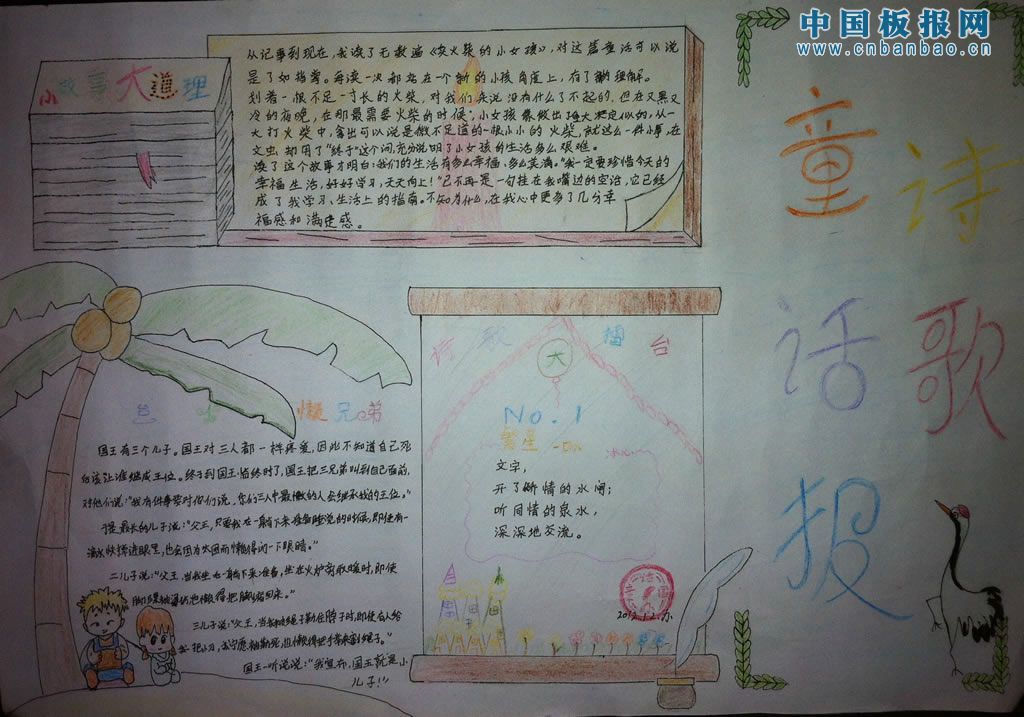 中国板报网
www.cnbanbao.cn
童话报
诗歌
小故事大道理
从记事到现在，我读了无数遍《卖火柴的小女孩》，对这篇童话可以说
是了如指掌。每读一次都站在一个新的小孩角度上，有了新理解。
划着一根不足一寸长的火柴，对我们来说没有什么了不起的，但在又黑又
冷的夜晚，在那最需要火柴的时候，小女孩像做出了重大决定似的，从一
大打火柴中，拿出可以说是微不足道的一根小小的火柴。就这么一件小事，在
文中却用了"终于"这个词，充分说明了小女孩的生活多么艰难。
读了这个故事才明白：我们的生活有多么幸福、多么美满。"我一定要珍惜今天的
幸福生活，好好学习，天天向上！"已不再是一句挂在我嘴边的空话，它已经
成了我学习、生活上的指南。不知为什么，在我心中更多了几分幸
福感和满足感。
懒兄弟
国王有三个儿子。国王对三人都一样疼爱，因此不知道自己死
后该让谁继成王位。终于到国王临终时了，国王把三兄弟叫到自己面前，
对他们说："我有件事要对你们说，你们三人中最懒的人会继承我的王位。"
于是最长的儿子说："父王，只要我在一躺下来准备睡觉的时候，即使有一
滴水快掉进眼里，也会因为太困而懒得闭一下眼睛。"
二儿子说："父王，当我坐下来准备，坐在火炉旁取暖时，即使
脚后跟被烫伤也懒得把脚缩回来。"
三儿子说："父王，当我被绳子勒住脖子时，即使有人给
我一把小刀，我宁愿被勒死，也懒得把手拿来割绳子。"
国王一听说说："我宣布，国王就是小
儿子！"
诗歌擂台
大
No.1
繁星
冰心
文字，
开了矫情的水闸；
听同情的泉水，
深深地交流。